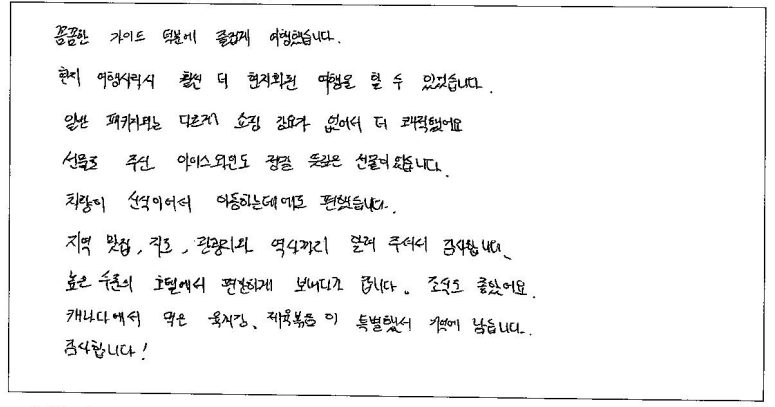 꼼꼼한 가이드 덕분에 즐겁게 여행했습니다.
현지 여행사라서 훨씬 더 현지화된 여행을 할 수 있었습니다.
일반 패키지와는 다르게 쇼핑 강요가 없어서 더 쾌적했어요
선물로 주신 아이스와인도 정말 뜻깊은 선물이었습니다.
차량이 신식이어서 이동하는데에도 편했습니다.
지역 맛집, 진로, 관광지와 역사까지 알려 주셔서 감사합니다.
높은 수준의 호텔에서 편안하게 보내다가 갑니다. 조식도 좋았어요.
캐나다에서 먹은 육개장, 제육볶음이 특별했어서 기억에 남습니다.
감사합니다!